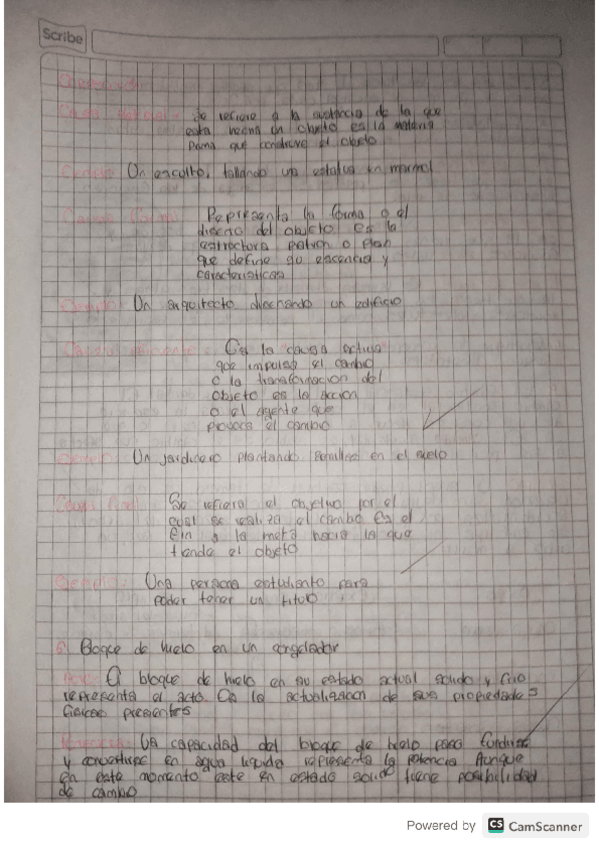 Scribe
Causa material: Se refiere a la sustancia de la que
esta hecha un objeto es la materia
prima que construye el objeto
Ejemplo: Un escultor, tallando una estatua en marmol
Causa formal: Representa la forma o el
diseño del objeto es la
estructura patron o plan
que define su escencia y
caracteristicas
Ejemplo: Un arquitecto diseñando un edificio
Causa eficiente: Es la causa activa
que impulsa el cambio
o la transformacion del
objeto es la accion
o el agente que
provoca el cambio
Ejemplo: Un jardinero plantando semillas en el suelo
Causa final: Se refiera al objetivo por el
cual se realiza el cambio es el
fin o la meta hacia la que
tiende el objeto
Ejemplo: Una persona estudiando para
poder tener un titulo
Bloque de hielo en un congelador
Acto: El bloque de hielo en su estado actual solido y frio
representa el acto. Es la actualizacion de sus propiedades
fisicas presentes
Potencia: La capacidad del bloque de hielo para fundirse
y convertirse en agua liquida representa la potencia Aunque
en este momento este en estado solido tiene posibilidad
de cambio
Powered by CS CamScanner